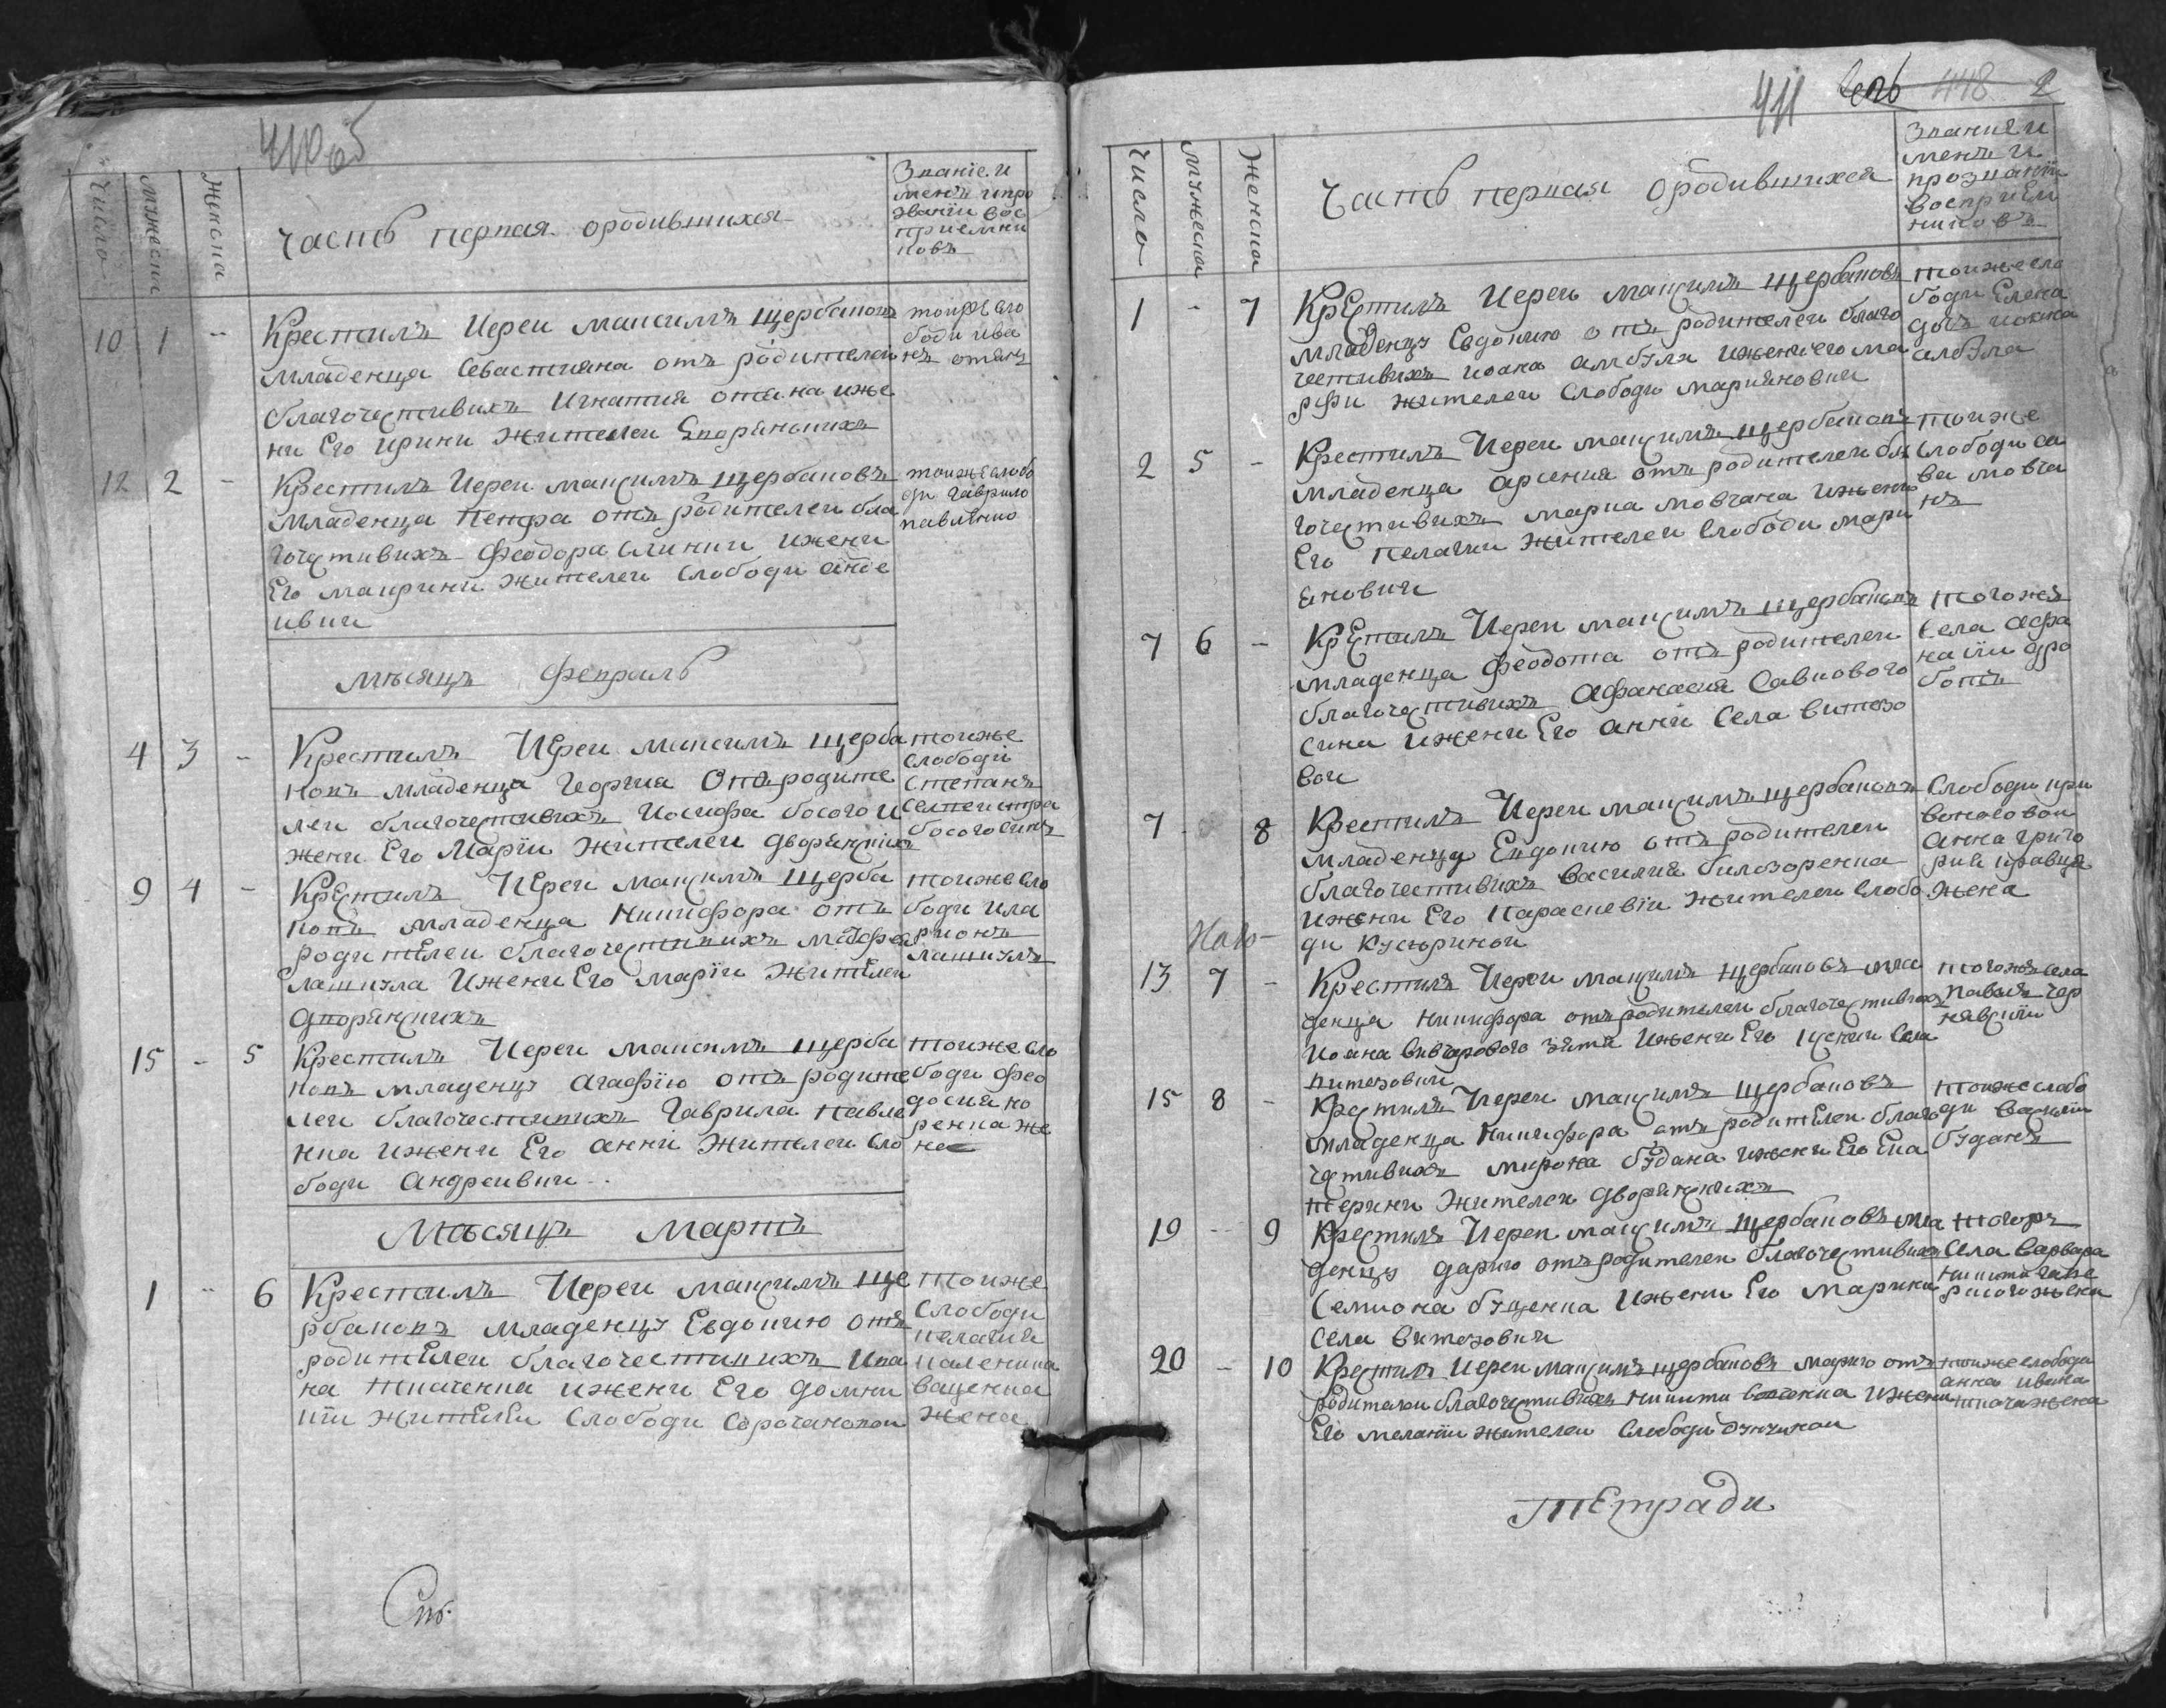 410 об
Число
Мужеска
Женска
Часть первая ородившихся
Званіе и
мена ипро
званіи вос
приемни
ковъ
10 1 -
Крестилъ Иереи максимъ щербаковъ
младенца Севастияна отъ родителеи
благочестивихъ Игнатия отана иже
ни Его ирини жителеи
боди ива
нъ отанъ
12 2 -
Крестилъ Иереи максимъ щербаковъ
младенца Петра отъ родителеи бла
гочестивихъ Феодора ижени
Его маирини жителеи слободи
ивки
тоиже слобо
ди гаврило
павленко
мѣсяцъ февраль
4 3 -
Крестилъ Иереи максимъ щерба
ковъ младенца Георгия Отъ родите
леи благочестивихъ Иосифа босого и
жени Его Маріи жителеи дворянскихъ
тоиже
слободи
степанъ
босого синъ
9 4 -
Крестилъ Иереи максимъ щерба
ковъ младенца Никифора отъ
родителеи благочестивихъ матфея
лашкула Ижени Его маріи жителеи
дворянскихъ
тоиже сло
боди ила
рионъ
лашкулъ
15 - 5
Крестилъ Иереи максимъ щерба
ковъ младенцу агафію отъ родите
леи благочестивихъ Гаврила павле
нка ижени Его анни жителеи сло
боди Андреивки
тоиже сло
боди фео
досия ко
ренка же
на
Мѣсяцъ Мартъ
1 - 6
Крестилъ Иереи максимъ ще
рбаковъ младенцу Евдокию отъ
родителеи благочестивихъ Ива
на ткаченка ижени Его домни
кіи жителеи слободи Сорочановои
тоиже
слободи
пелагия
ваценка
жена
411 448 2
Число
Мужеска
Женска
Часть первая ородившихся
Звания и
мена и
прозваніи
восприем
никовъ
1 - 7
Крестилъ Иереи максимъ щербаковъ
младенцу Евдокию отъ родителеи благо
честивихъ иоана амбула ижени его ма
рфи жителеи слободи марияновки
тоиже сло
боди Елена
дочъ иоанна
амбула
2 5 -
Крестилъ Иереи максимъ щербаковъ
младенца арсения отъ родителеи бла
гочестивихъ марка мовчана ижени
Его пелагии жителеи слободи мари
яновки
тоиже
слободи са
ва мовча
нъ
7 6 -
Крестилъ Иереи максимъ щербаковъ
младенца феодота отъ родителеи
благочестивихъ Афанасия Савкового
сина ижени Его анни села витязо
вои
тогожъ
села афа
насіи дро
ботъ
7 - 8
Крестилъ Иереи максимъ щербаковъ
младенцу Евдокию отъ родителеи
благочестивихъ василия билозоренка
ижени Его Параскевіи жителеи слобо
ди Кусюринои
слободи при
воколовои
анна григо
рия кравца
жена
13 7 -
Крестилъ Иереи максимъ щербаковъ мла
денца никифора отъ родителеи благочестивихъ
иоана вивчарового зятя ижени Его села
витязовки
тогожъ села
павелъ чер
нявскіи
15 8 -
Крестилъ Иереи максимъ щербаковъ
младенца никифора отъ родителеи благо
честивихъ мирона будана ижени Его Ека
терини жителеи дворянскихъ
тоиже слобо
ди василіи
буданъ
19 - 9
Крестилъ Иереи максимъ щербаковъ мла
денцу дарию отъ родителеи благочестивихъ
Семиона буценка ижени Его Марини
села витязовки
села варвара
жена
20 - 10
Крестилъ Иереи максимъ щербаковъ марию отъ
родителеи благочестивихъ никити ижени
Его меланіи жителеи слободи
тоиже слободи
анна ивана
ткача жена
Тетради